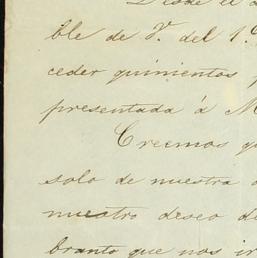 Desde el
ble de V. del 1º
ceder quinientos
presentada á M
Creemos qu
solo de nuestra
nuestro deseo de
branto que nos ir